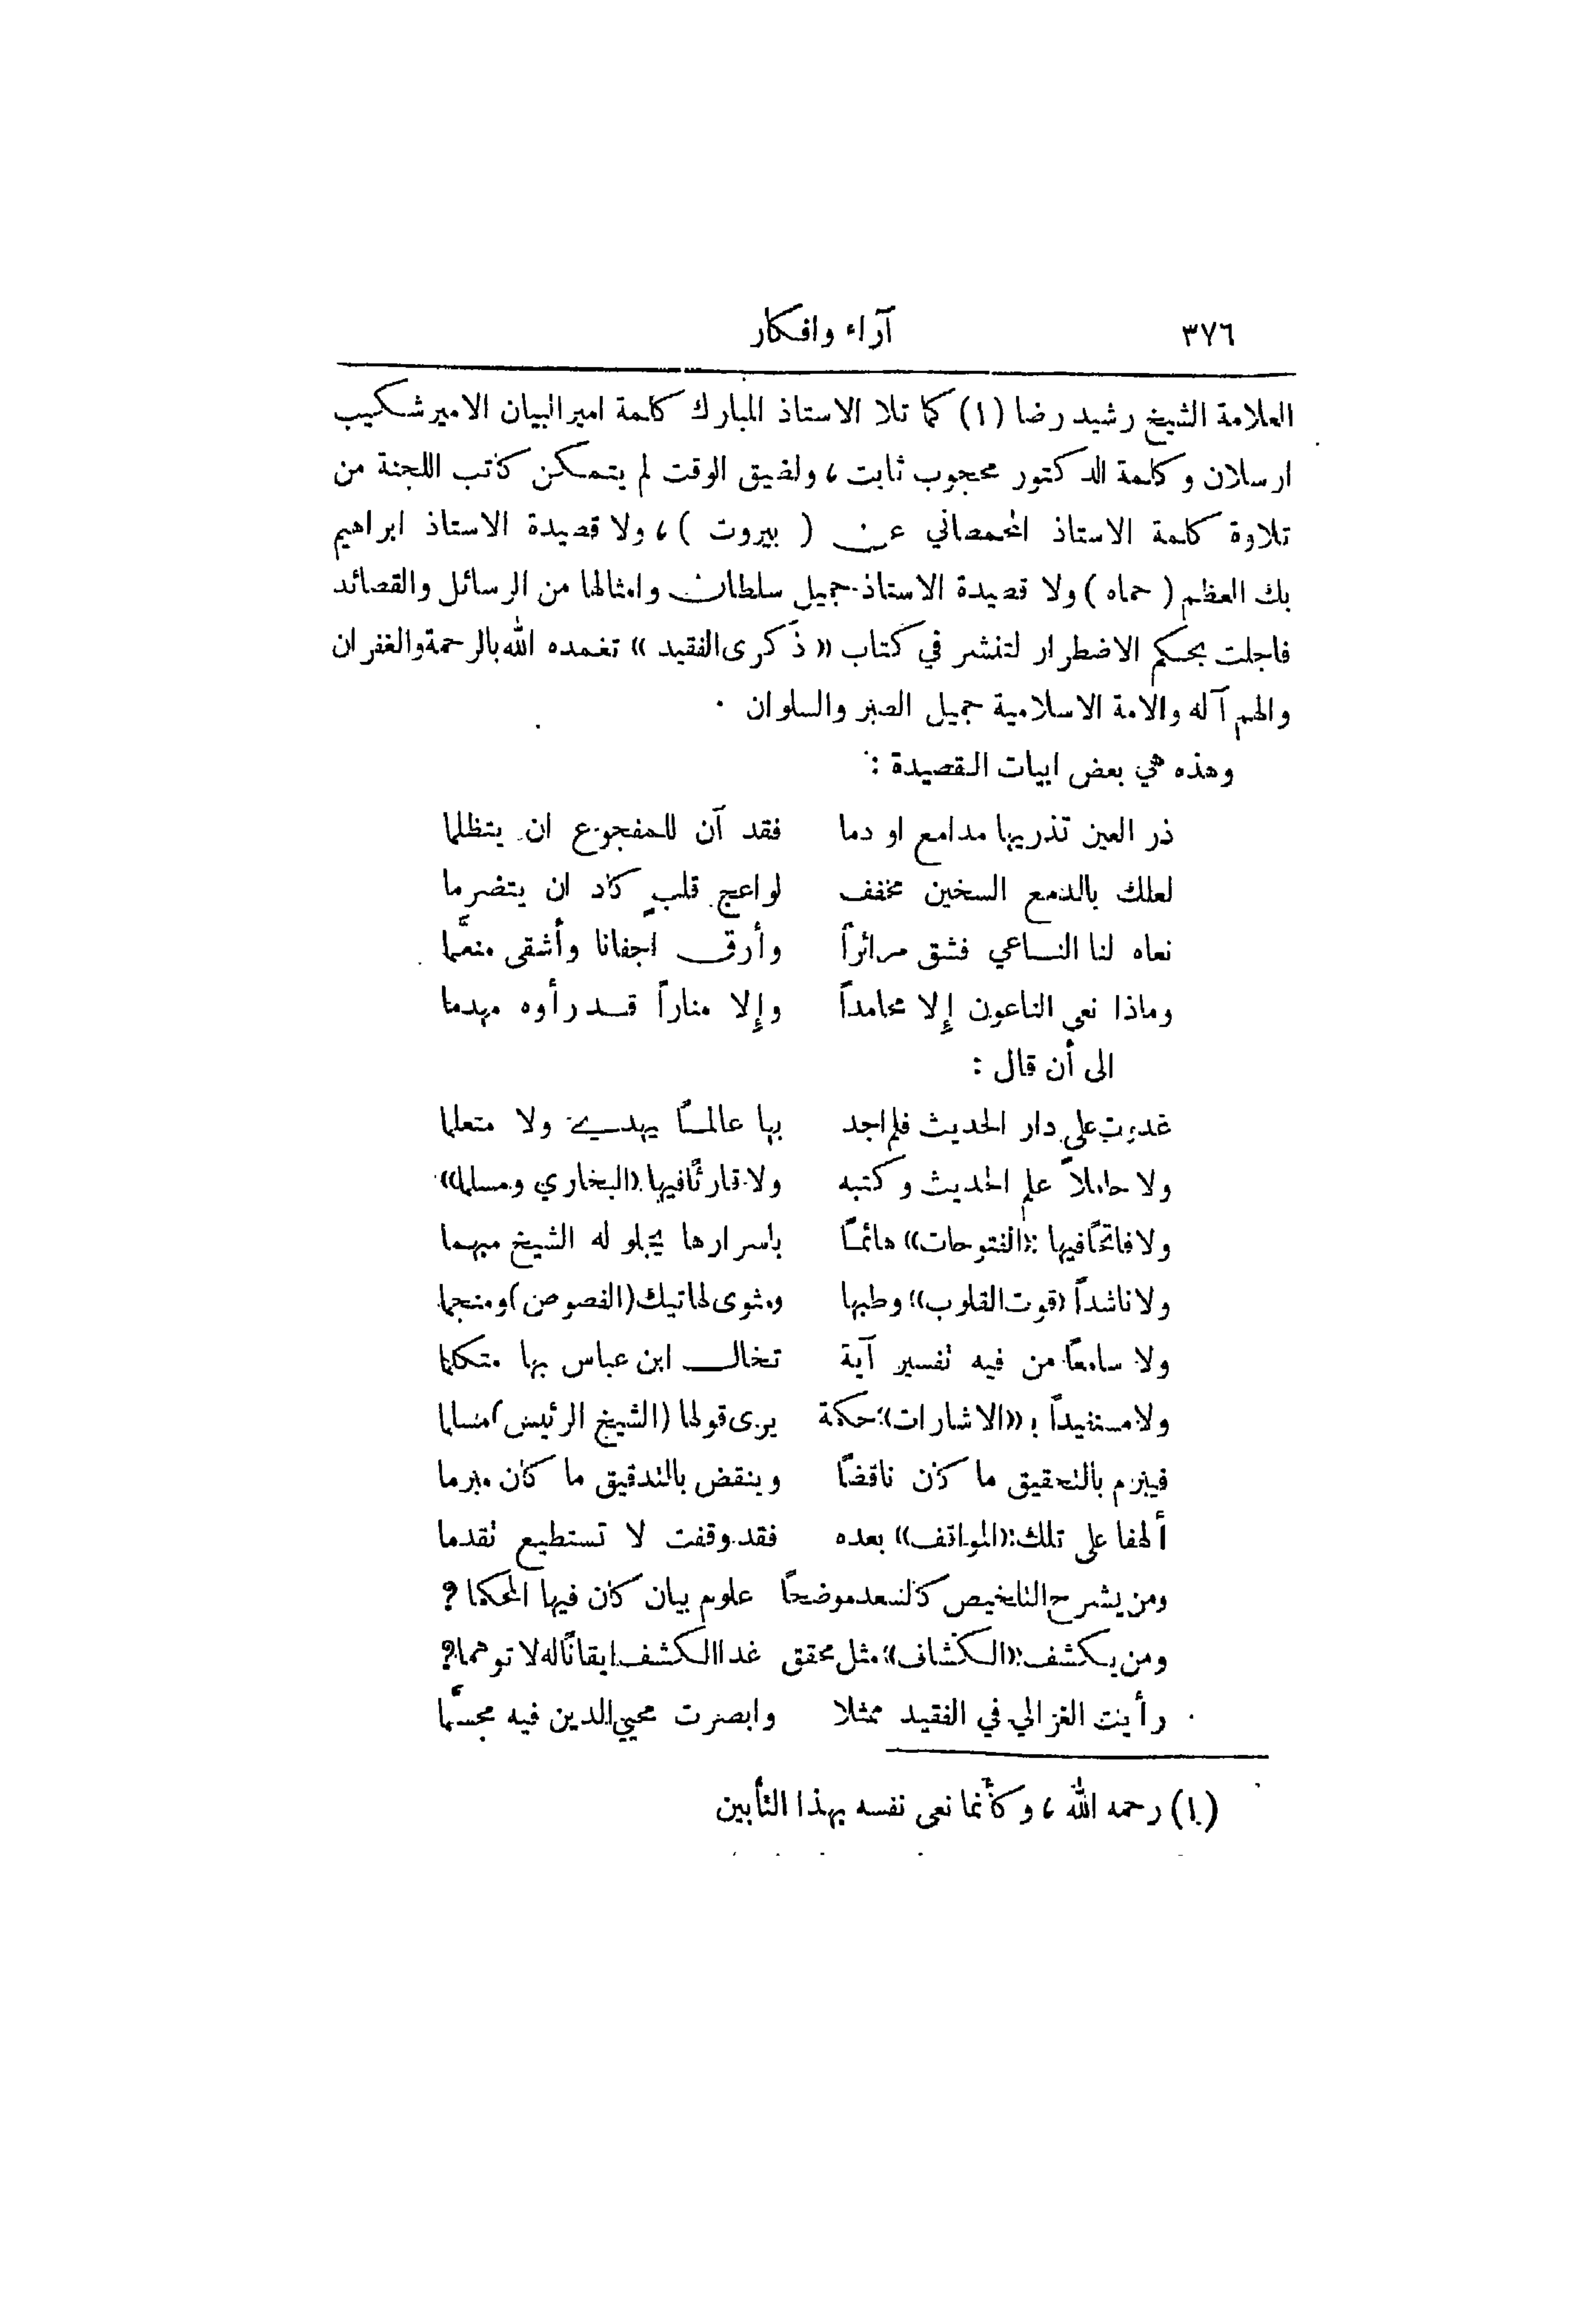 ٣٧٦ آراء وافكار
العلامة الشيخ رشيد رضا (١) كما تلا الاستاذ المبارك كلمة امير البيان الامير شكيب
ارسلان وكلمة الدكتور محجوب ثابت ، ولضيق الوقت لم يتمكن كاتب اللجنة من
تلاوة كلمة الاستاذ المحمصاني عن ( بيروت ) ، ولا قصيدة الاستاذ ابراهيم
بك العظم ( حماه ) ولا قصيدة الاستاذ جميل سلطان وامثالها من الرسائل والقصائد
فاجلت بحكم الاضطرار لتنشر في كتاب « ذكرى الفقيد » تغمده الله بالرحمة والغفران
والهم آله والامة الاسلامية جميل الصبر والسلوان .
وهذه هي بعض ابيات القصيدة :
ذر العين تذريها مدامع او دما فقد آن للمفجوع ان يتظلما
لعلك بالدمع السخين مخفف لواعج قلبٍ كاد ان يتضرما
نعاه لنا النـاعي فشق مرائراً وأرق اجفانا وأشقى منعَّما
وماذا نعى الناعون إلا محامداً وإلا مناراً قد رأوه مهدما
الى أن قال :
غدوت على دار الحديث فلم اجد بها عالمـاً يهدي ولا متعلما
ولا حاملاً علم الحديث وكتبه ولا قارئاً فيها «البخاري ومسلما»
ولا فاتحاً فيها «الفتوحات» هائمـاً باسرارها يجلو له الشيخ مبهما
ولا ناشداً «قوت القلوب» وطبها ومثوى لهاتيك (الفصوص) ومنجما
ولا سامعاً من فيه تفسير آية تخال ابن عباس بها متكلما
ولا مستفيداً بـ «الاشارات» حكمة يرى قولها (الشيخ الرئيس) مسلما
فيبرم بالتحقيق ما كان ناقضاً وينقض بالتدقيق ما كان مبرما
ألهفا على تلك «المواقف» بعده فقد وقفت لا تستطيع تقدما
ومن يشرح التلخيص كالسعد موضحاً علوم بيان كان فيها المحكما ؟
ومن يكشف «الكشاف» مثل محقق غدا الكشف ايقاناً له لا توهما؟
رأيت الغزالي في الفقيد ممثلا وابصرت محيي الدين فيه مجسَّما
(١) رحمه الله ، وكأنما نعى نفسه بهذا التأبين